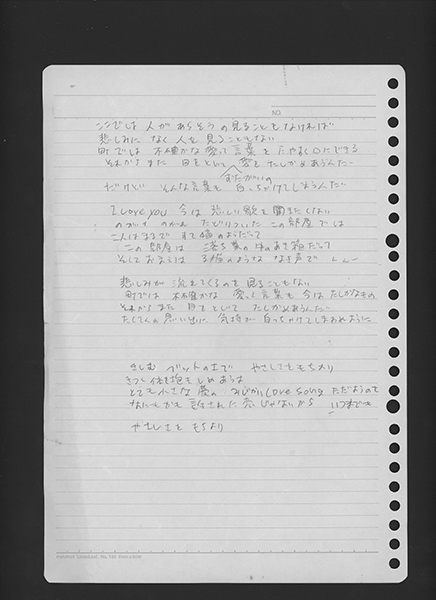 NO.
ここでは 人が あらそうの見ることもなければ
悲しみに なく人を見ることもない
町では 不確かな 愛って言葉を たやすく口にできる
それからまた 目をとじて 愛を たしかめあうんだ
おたがいの
だけど そんな言葉も 白っちゃけてしまうんだ
I Love you 今は 悲しい歌を聞きたくない
のがれ のがれ たどりついた この部屋では
この部屋は 落ち葉の中のあき箱だって
そしておまえは 子猫のような なき声で
悲しみが 流れてくるのを 見ることもない
町では 不確かな 愛って言葉も 今はたしかなもの
それからまた 目をとじて たしかめあうんだ
たくさんの思い出に 気持が 白っちゃけてしまわぬように
きしむ ベットの上で やさしさをもちより
きつく体を抱きしめあうは
とても小さな 愛の みじかいLove song
なにもかも 許された 恋じゃないから いつまでも
やさしさを もちより